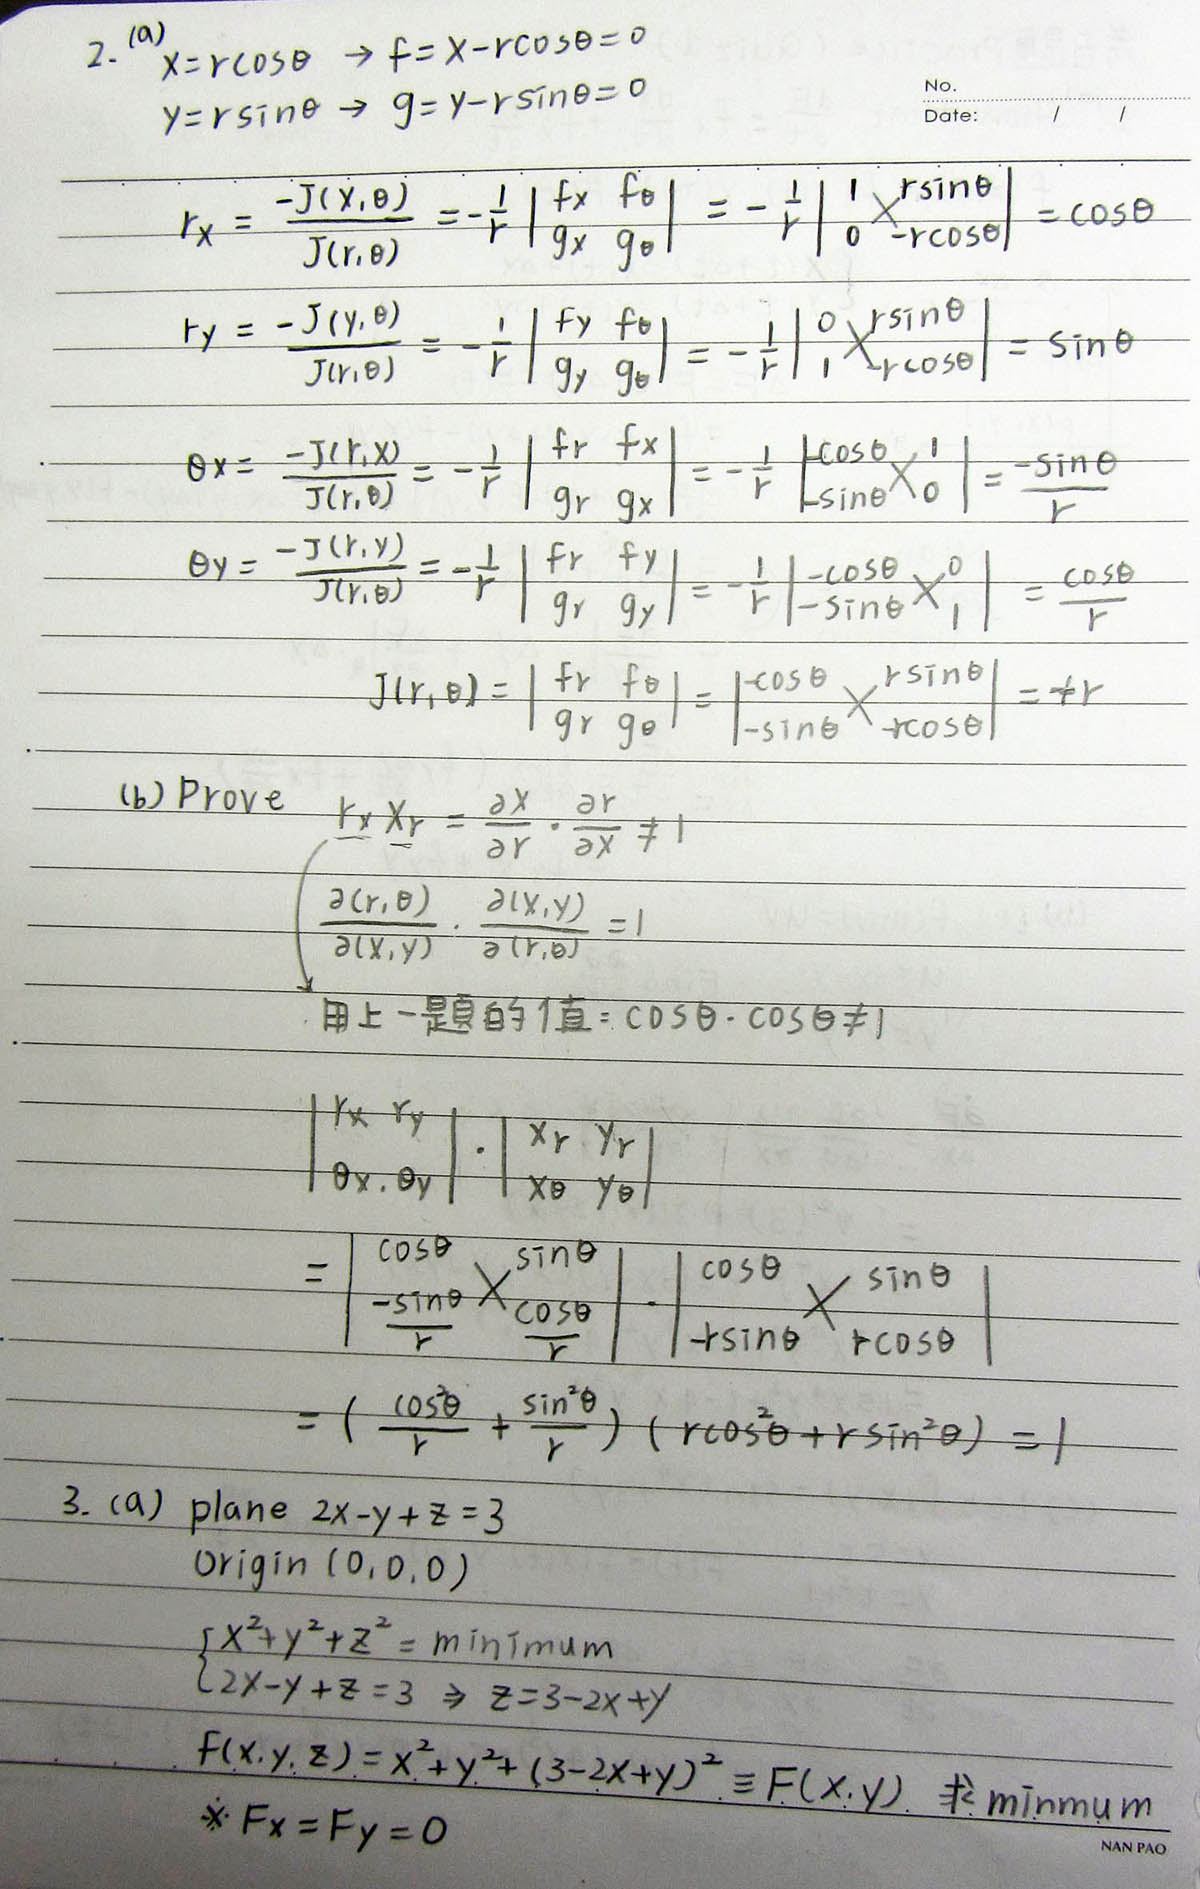 2. (a) x=rcosθ → f=x-rcosθ=0
y=rsinθ → g=y-rsinθ=0
No.
Date: / /
rx = -J(x,θ)/J(r,θ) = -1/r |fx fθ; gx gθ| = -1/r |1 rsinθ; 0 -rcosθ| = cosθ
ry = -J(y,θ)/J(r,θ) = -1/r |fy fθ; gy gθ| = -1/r |0 rsinθ; 1 -rcosθ| = sinθ
θx = -J(r,x)/J(r,θ) = -1/r |fr fx; gr gx| = -1/r |-cosθ 1; -sinθ 0| = -sinθ/r
θy = -J(r,y)/J(r,θ) = -1/r |fr fy; gr gy| = -1/r |-cosθ 0; -sinθ 1| = cosθ/r
J(r,θ) = |fr fθ; gr gθ| = |-cosθ rsinθ; -sinθ -rcosθ| = +r
(b) Prove rx xr = ∂x/∂r · ∂r/∂x ≠ 1
∂(r,θ)/∂(x,y) · ∂(x,y)/∂(r,θ) = 1
用上一題的值: cosθ·cosθ≠1
|rx ry; θx.θy| · |xr yr; xθ yθ|
= |cosθ sinθ; -sinθ/r cosθ/r| · |cosθ sinθ; -rsinθ rcosθ|
= (cos²θ/r + sin²θ/r) (rcos²θ + rsin²θ) = 1
3. (a) plane 2x-y+z=3
Origin (0,0,0)
{x²+y²+z² = minimum
2x-y+z=3 ⇒ z=3-2x+y
f(x.y.z) = x²+y²+(3-2x+y)² ≡ F(x.y) 求 minmum
* Fx=Fy=0
NAN PAO